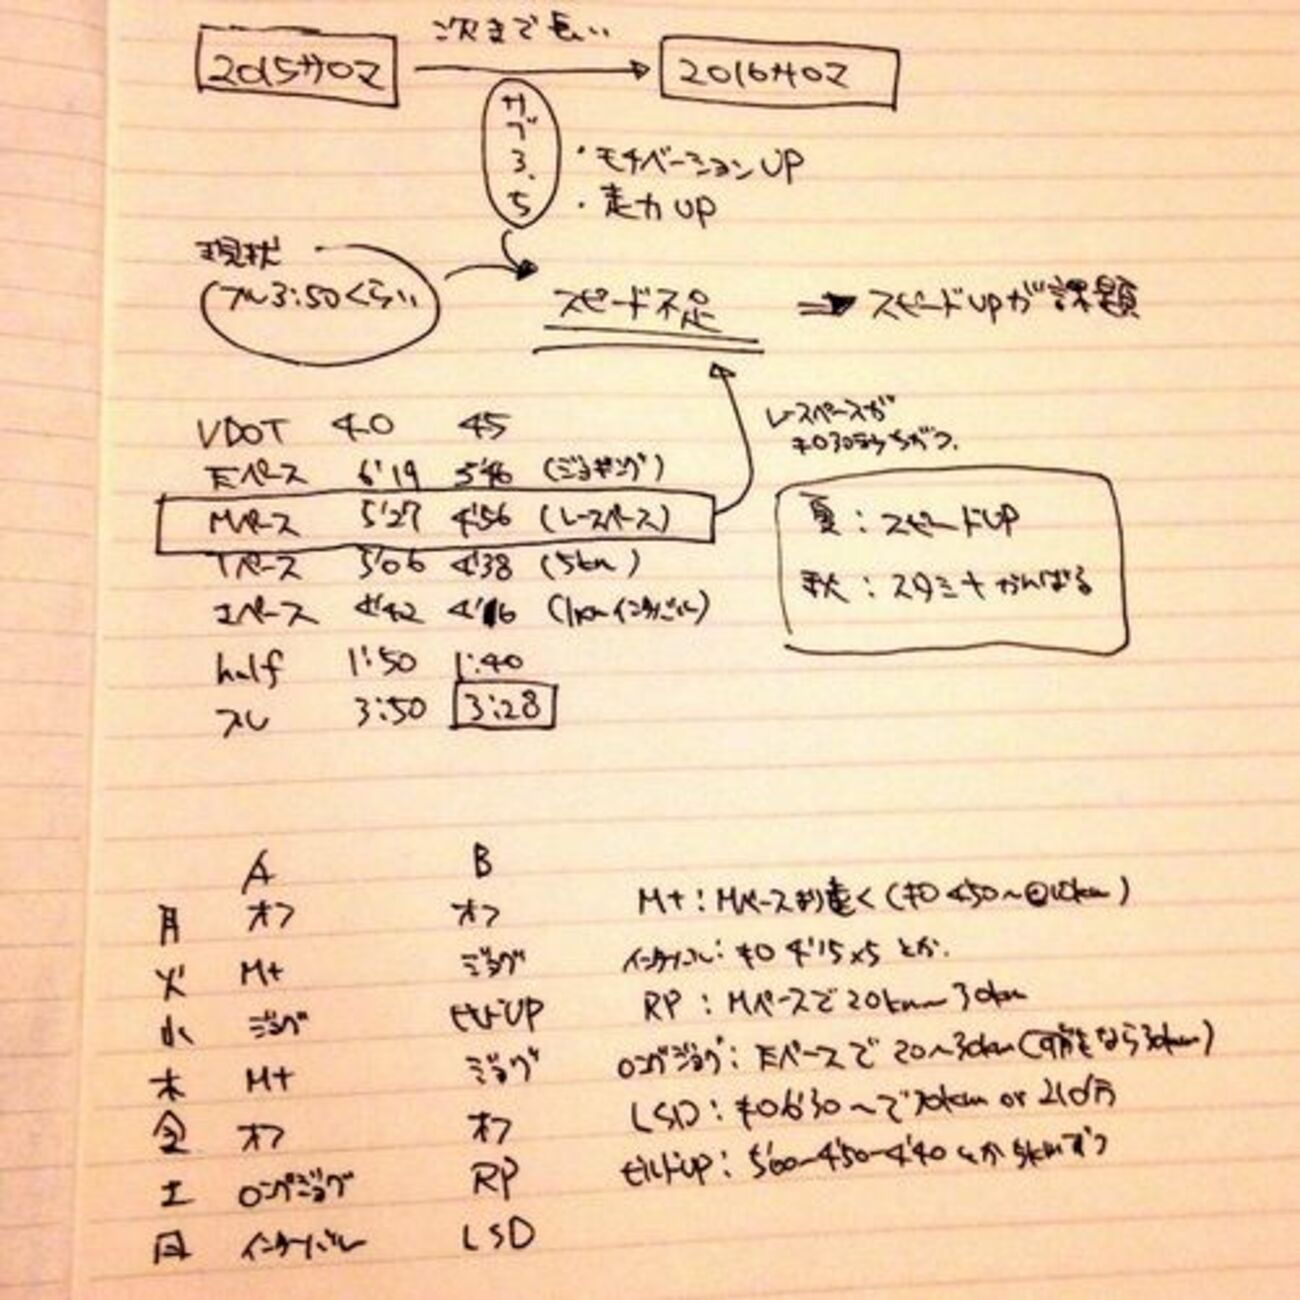 次まで長い
2015サロマ
2016サロマ
サブ3.5
・モチベーションUP
・走力UP
現状
フル3:50くらい
スピード不足
スピードUPが課題
レースペースが
キロ30秒ちがう。
VDOT 40 45
Eペース 6'19 5'46 (ジョギング)
Mペース 5'27 4'56 (レースペース)
Tペース 5'06 4'38 (5km)
Iペース 4'42 4'16 (1kmインターバル)
half 1:50 1:40
フル 3:50 3:28
夏:スピードUP
秋:スタミナがんばる
A B
月 オフ オフ
火 M+ ジョグ
水 ジョグ ビルドUP
木 M+ ジョグ
金 オフ オフ
土 ロングジョグ RP
日 インターバル LSD
M+:Mペースより速く(キロ4'50〜 10km)
インターバル:キロ4'15×5とか.
RP:Mペースで20km〜30km
ロングジョグ:Eペースで20〜30km(可能なら30km)
LSD:キロ6'30〜で30km or
ビルドUP:5'00-4'50-4'40とか5kmずつ